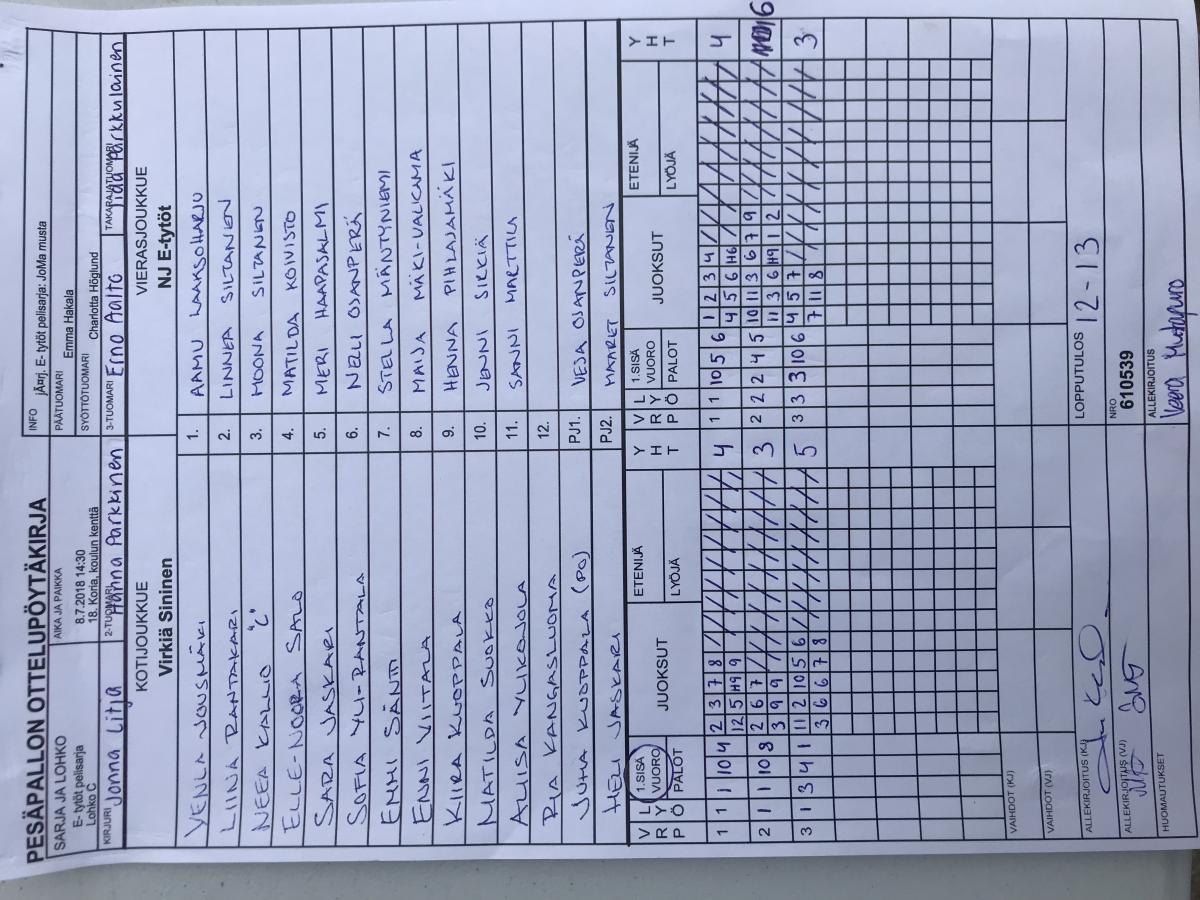 PESÄPALLON OTTELUPÖYTÄKIRJA
SARJA JA LOHKO
E- tytöt pelisarja
Lohko C
AIKA JA PAIKKA
8.7.2018 14:30
18. Koria, koulun kenttä
INFO jÄ¤rj. E- tytöt pelisarja: JoMa musta
PÄÄTUOMARI Emma Hakala
SYÖTTÖTUOMARI Charlotta Höglund
KIRJURI Jonna Litja
2-TUOMARI Hanna Parkkinen
3-TUOMARI Eino Aalto
TAKARAJATUOMARI Iida Parkkulainen
KOTIJOUKKUE
Virkiä Sininen
VIERASJOUKKUE
NJ E-tytöt
VENLA JOUSMÄKI 1. AAMU LAAKSOHARJU
LIINA RANTAKARI 2. LINNEA SILTANEN
NEEA KALLIO "C" 3. MOONA SILTANEN
ELLE-NOORA SALO 4. MATILDA KOIVISTO
SARA JASKARI 5. MERI HAAPASALMI
SOFIA YLI-RANTALA 6. NELLI OJANPERÄ
EMMI SÄNTTI 7. STELLA MÄNTYNIEMI
ENNI VIITALA 8. MAIJA MÄKI-VALKAMA
KIIRA KUOPPALA 9. HENNA PIHLAJAMÄKI
MATILDA SUOKKO 10. JENNI SIKKIÄ
ALIISA YLIKOJOLA 11. SANNI MARTTILA
PIA KANGASLUOMA 12.
JUHA KUOPPALA (PO) PJ1. VEJA OJANPERÄ
HELI JASKARI PJ2. MAARET SILTANEN
V R P L Y Ö 1.SISÄ VUORO PALOT JUOKSUT ETENIJÄ LYÖJÄ Y H T V R P L Y Ö 1.SISÄ VUORO PALOT JUOKSUT ETENIJÄ LYÖJÄ Y H T
1 1 1 10 4 2 3 7 8 4 1 1 10 5 6 1 2 3 4 4
12 5 H9 9 4 5 6 H6
2 1 1 10 8 2 6 7 3 2 2 2 4 5 10 11 3 6 7 9 6
3 9 9 11 3 6 H9 1 2
3 1 3 4 1 11 2 10 5 6 5 3 3 3 10 6 4 5 7 3
3 6 6 7 8 7 11 8
VAIHDOT (KJ)
VAIHDOT (VJ)
ALLEKIRJOITUS (KJ)
LOPPUTULOS 12-13
ALLEKIRJOITUS (VJ)
NRO
610539
HUOMAUTUKSET
ALLEKIRJOITUS